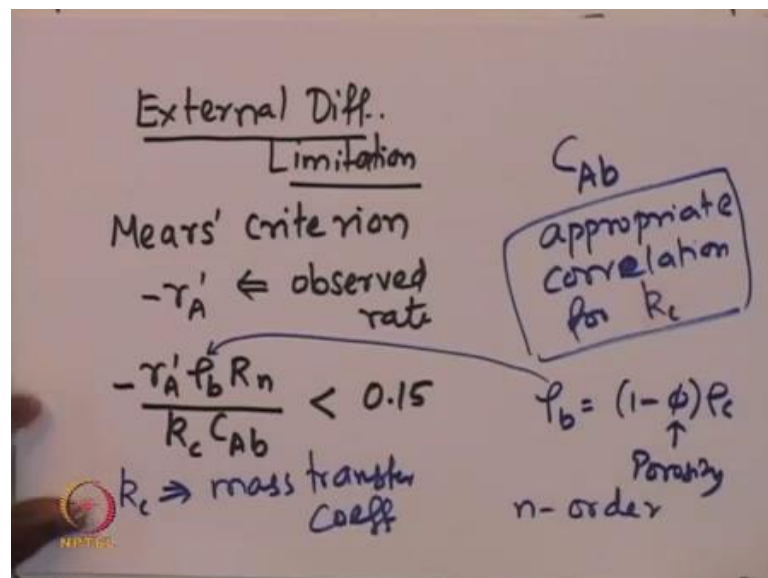 External Diff.
Limitation
Mears' criterion
-r_A' ⇐ observed
rate
-r_A' ρ_b R n / k_c C_Ab < 0.15
k_c ⇒ mass transfer
coeff
C_Ab
appropriate
correlation
for k_c
ρ_b = (1-φ)ρ_c
↑
Porosity
n-order
NPTEL